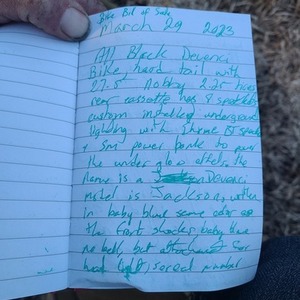 Bike Bill of Sale
March 29 2023
All Black Devenci
Bike, hard tail with
27.5 Nobby 2.25 tires
rear cassette has 9 sprockets
custom installed underground
lighting with
+ 5m power bank to power
the under glow effects, the
Name is a Devenci
model is Jackson, written
in baby blue same color as
the front shocks, baby blue
no bell, but attachment for
head light, serial number